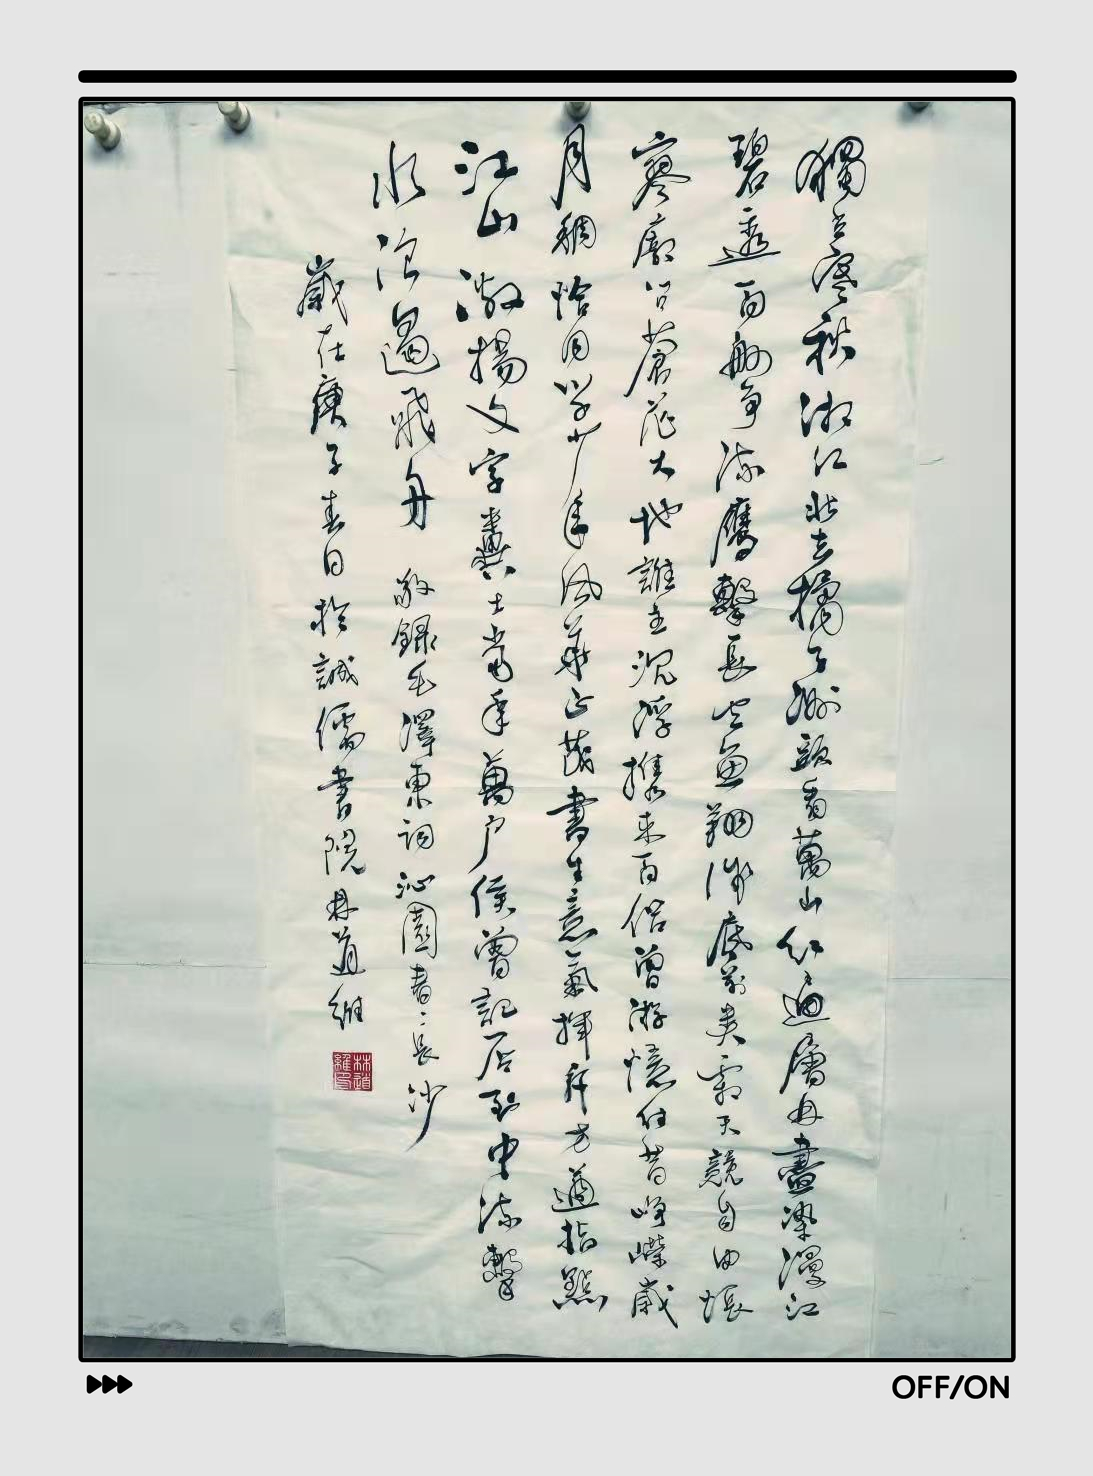 獨立寒秋湘江北去橘子洲頭看萬山紅遍層林盡染漫江
碧透百舸爭流鷹擊長空魚翔淺底萬類霜天競自由悵
寥廓問蒼茫大地誰主沉浮攜來百侶曾游憶往昔崢嶸歲
月稠恰同學少年風華正茂書生意氣揮斥方遒指點
江山激揚文字糞土當年萬戶侯曾記否到中流擊
水浪遏飛舟 敬錄毛澤東詞沁園春長沙
歲在庚子春日於誠儒書院林道維
林道維印
OFF/ON